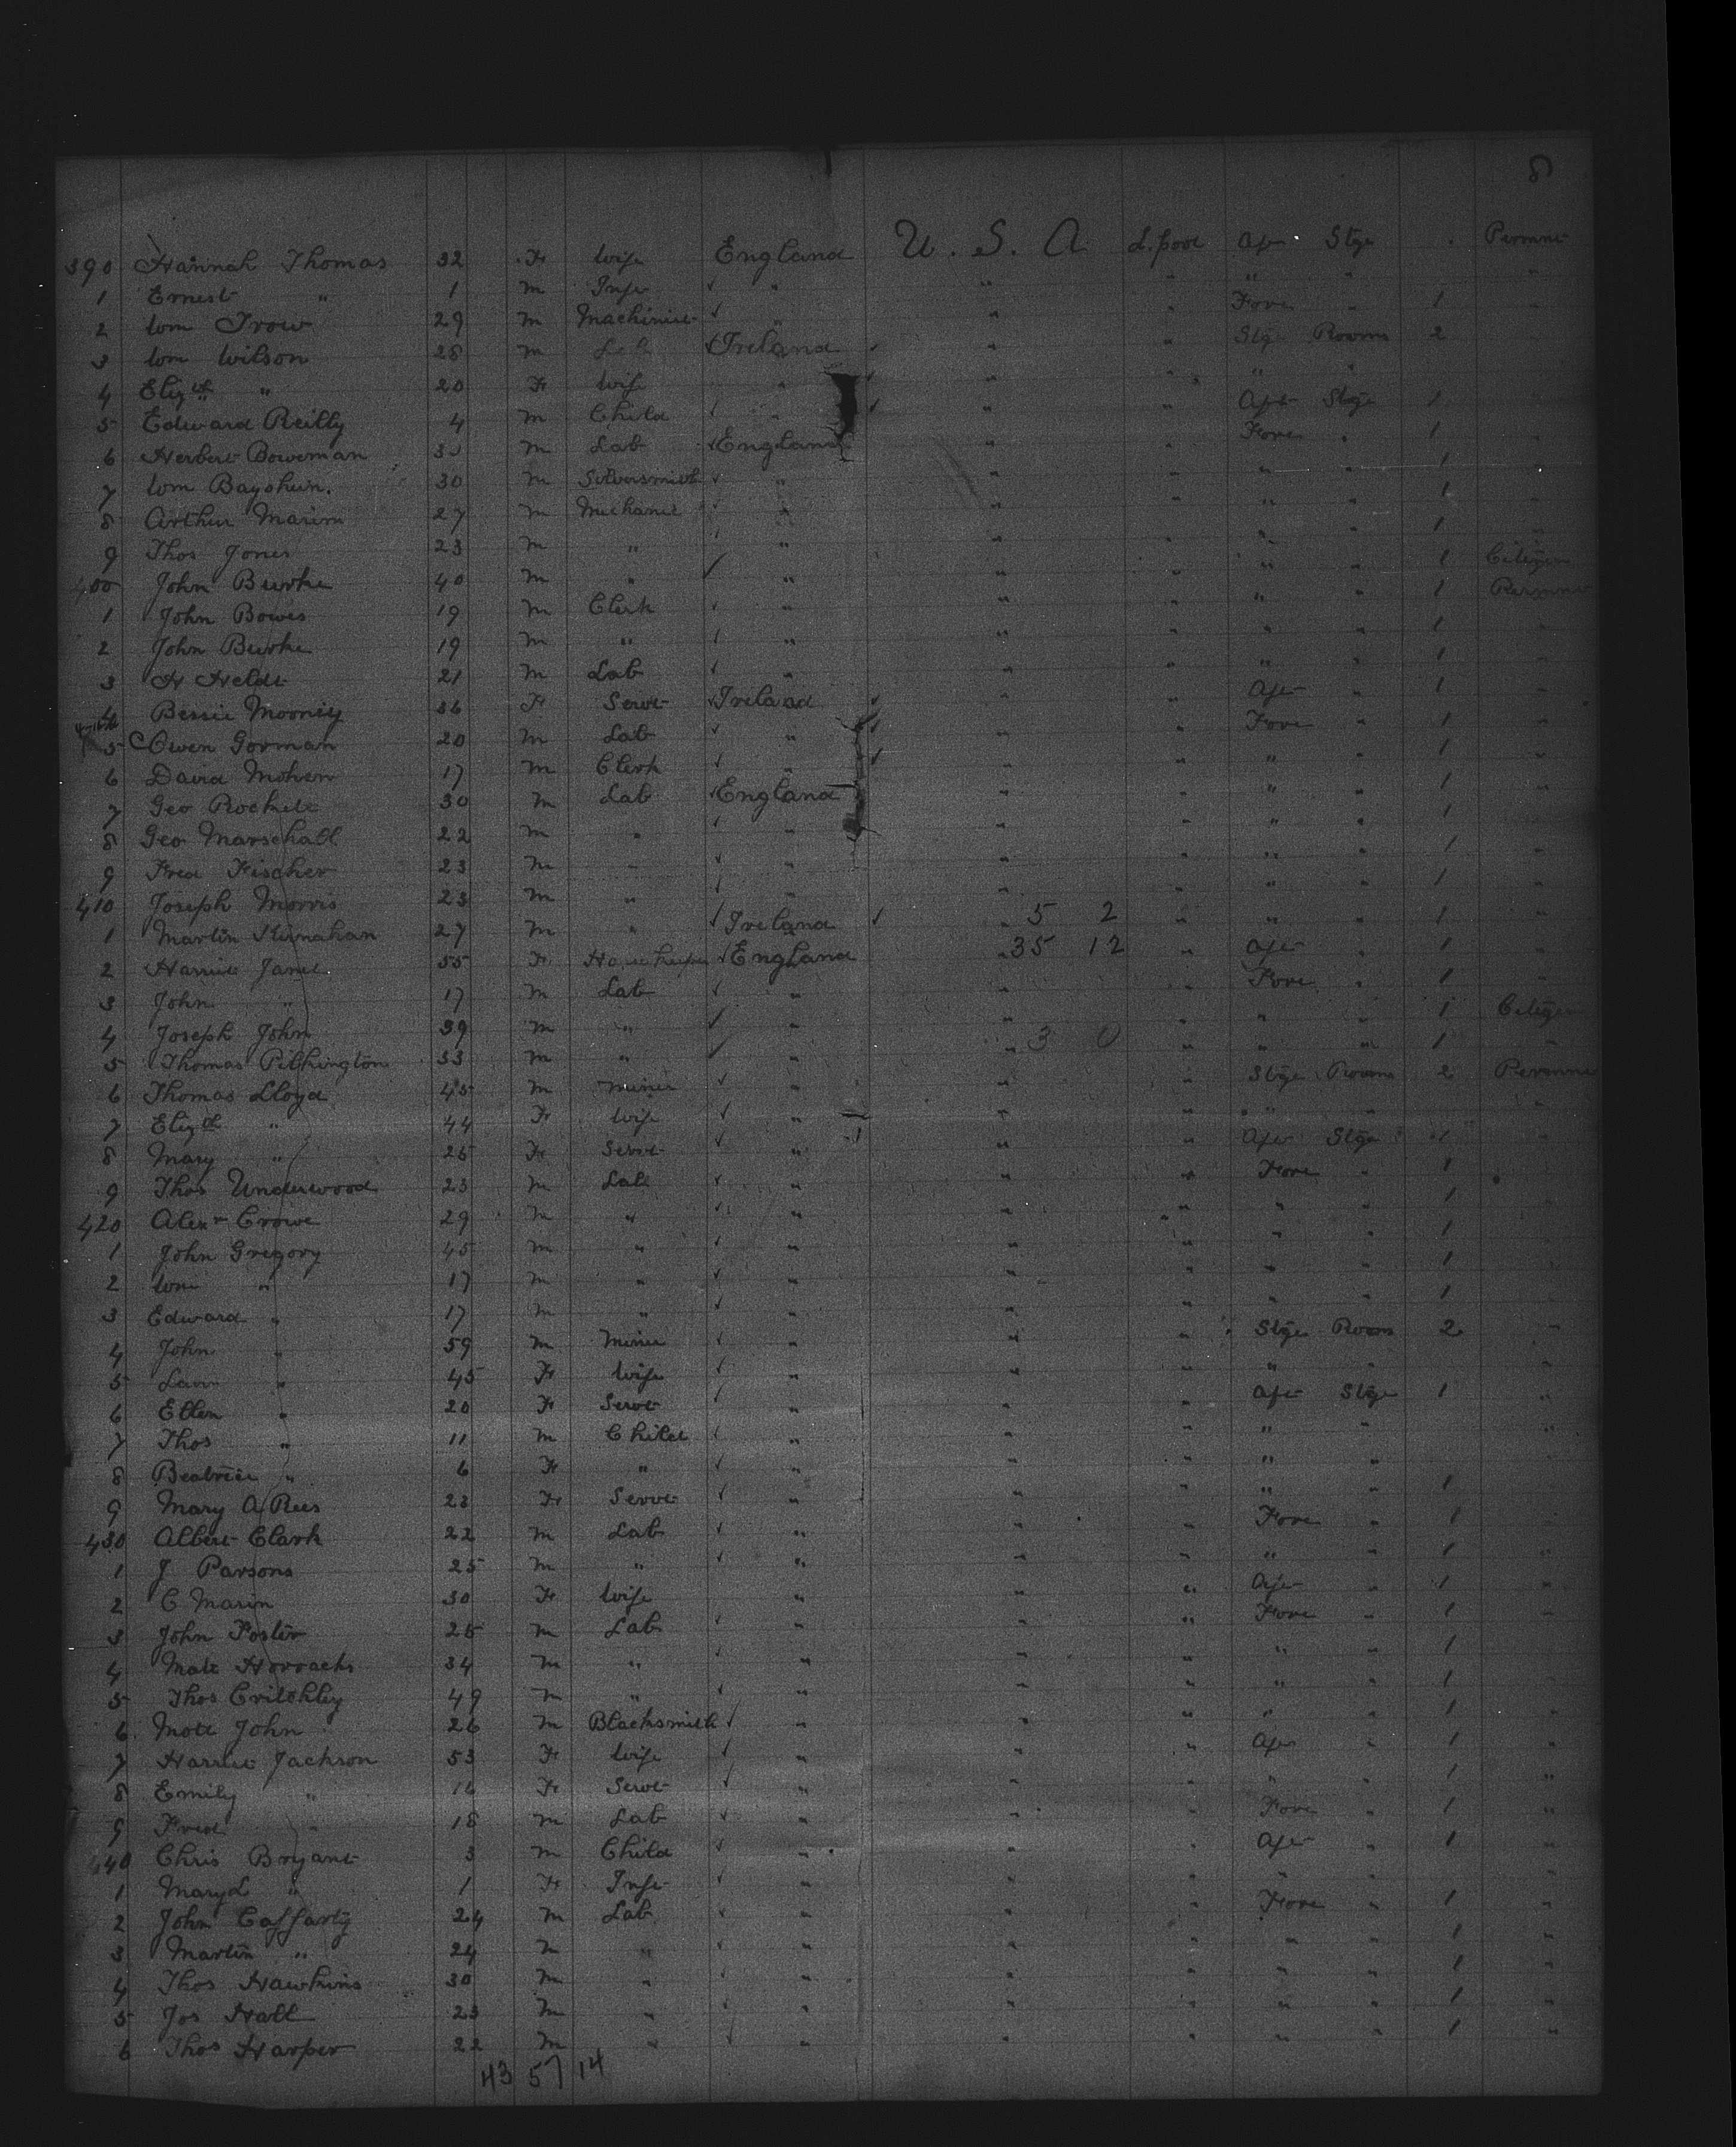 8
390 Hannah Thomas 32 F Wife England U. S. A L.pool Aft Stge Permnt
1 Ernest " 1 M Inft " " " " " "
2 Wm Trow 29 M Machinist " " " Fore " 1 "
3 Wm Wilson 28 M Lab Ireland " " Stge Rooms 2
4 Elizth " 20 F Wife " " " " "
5 Edward Reilly 4 M Child " " " Aft Stge 1
6 Herbert Boweman 30 M Lab England " " Fore " 1
7 Wm 30 M Silversmith " " " " " 1
8 Arthur 27 M Mechanic " " " " " 1
9 Thos Jones 23 M " " " " " " 1 "
400 John Burke 40 M " " " " " " 1 Citizen
1 John Bowes 19 M Clerk " " " " " 1 Permnt
2 John Burke 19 M " " " " " " 1 "
3 H Heldt 21 M Lab " " " " " 1 "
4 Bessie Mooney 36 F Servt Ireland " " Aft " 1 "
5 Owen Gorman 20 M Lab " " " Fore " 1 "
6 David 17 M Clerk " " " " " 1 "
7 Geo 30 M Lab England " " " " 1 "
8 Geo Marschall 22 M " " " " " " 1 "
9 Fred Fischer 23 M " " " " " " 1 "
410 Joseph Morris 23 M " " " " " " 1 "
1 Martin 27 M " Ireland " 5 2 " " " 1 "
2 Harriet Jane 55 F Housekeeper England " 35 12 " Aft " 1 "
3 John " 17 M Lab " " " Fore " 1 "
4 Joseph John 39 M " " " " " " 1 Citizen
5 Thomas Pilkington 33 M " " " 3 0 " " " 1 "
6 Thomas Lloyd 45 M Miner " " " Stge Rooms 2 Permnt
7 Elizth " 44 F Wife " " " " " "
8 Mary " 25 F Servt " " " Aft Stge 1
9 Thos Underwood 23 M Lab " " " Fore " 1
420 Alexr Crowe 29 M " " " " " " 1 "
1 John Gregory 45 M " " " " " " 1 "
2 Wm " 17 M " " " " " " 1 "
3 Edward " 17 M " " " " " " 1 "
4 John " 59 M Miner " " " Stge Room 2 "
5 " 45 F Wife " " " " " "
6 Ellen " 20 F Servt " " " Aft Stge 1 "
7 Thos " 11 M Child " " " " " "
8 Beatrice " 6 F " " " " " " "
9 Mary A Rees 23 F Servt " " " " " 1 "
430 Albert Clark 22 M Lab " " " Fore " 1 "
1 J Parsons 25 M " " " " " " 1 "
2 C 30 F Wife " " " Aft " 1 "
3 John Foster 25 M Lab " " " Fore " 1 "
4 Horrocks 34 M " " " " " " 1 "
5 Thos Critchley 49 M " " " " " " 1 "
6 John 26 M Blacksmith " " " " " 1 "
7 Harriet Jackson 53 F Wife " " " Aft " 1 "
8 Emily " 16 F Servt " " " " " 1 "
9 Fred " 18 M Lab " " " Fore " 1 "
440 Chris Bryant 3 M Child " " " Aft " 1 "
1 Mary L " 1 F Inft " " " " " "
2 John Caffarty 24 M Lab " " " Fore " 1 "
3 Martin " 24 M " " " " " " 1 "
4 Thos Hawkins 30 M " " " " " " 1 "
5 Jos Hall 23 M " " " " " " 1 "
6 Thos Harper 22 M " " " " " " 1 "
43 57 14